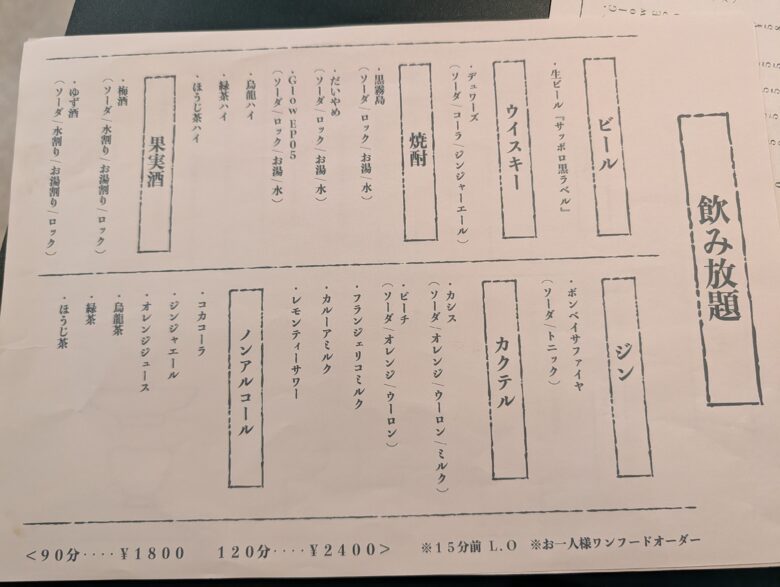 飲み放題
ビール
・生ビール『サッポロ黒ラベル』
ウイスキー
・デュワーズ
（ソーダ/コーラ/ジンジャーエール）
焼酎
・黒霧島
（ソーダ/ロック/お湯/水）
・だいやめ
（ソーダ/ロック/お湯/水）
・GlowEP05
（ソーダ/ロック/お湯/水）
・烏龍ハイ
・緑茶ハイ
・ほうじ茶ハイ
果実酒
・梅酒
（ソーダ/水割り/お湯割り/ロック）
・ゆず酒
（ソーダ/水割り/お湯割り/ロック）
ジン
・ボンベイサファイヤ
（ソーダ/トニック）
カクテル
・カシス
（ソーダ/オレンジ/ウーロン/ミルク）
・ピーチ
（ソーダ/オレンジ/ウーロン）
・フランジェリコミルク
・カルーアミルク
・レモンティーサワー
ノンアルコール
・コカコーラ
・ジンジャエール
・オレンジジュース
・烏龍茶
・緑茶
・ほうじ茶
<90分‥‥¥1800　120分‥‥¥2400>　※15分前 L.O　※お一人様ワンフードオーダー